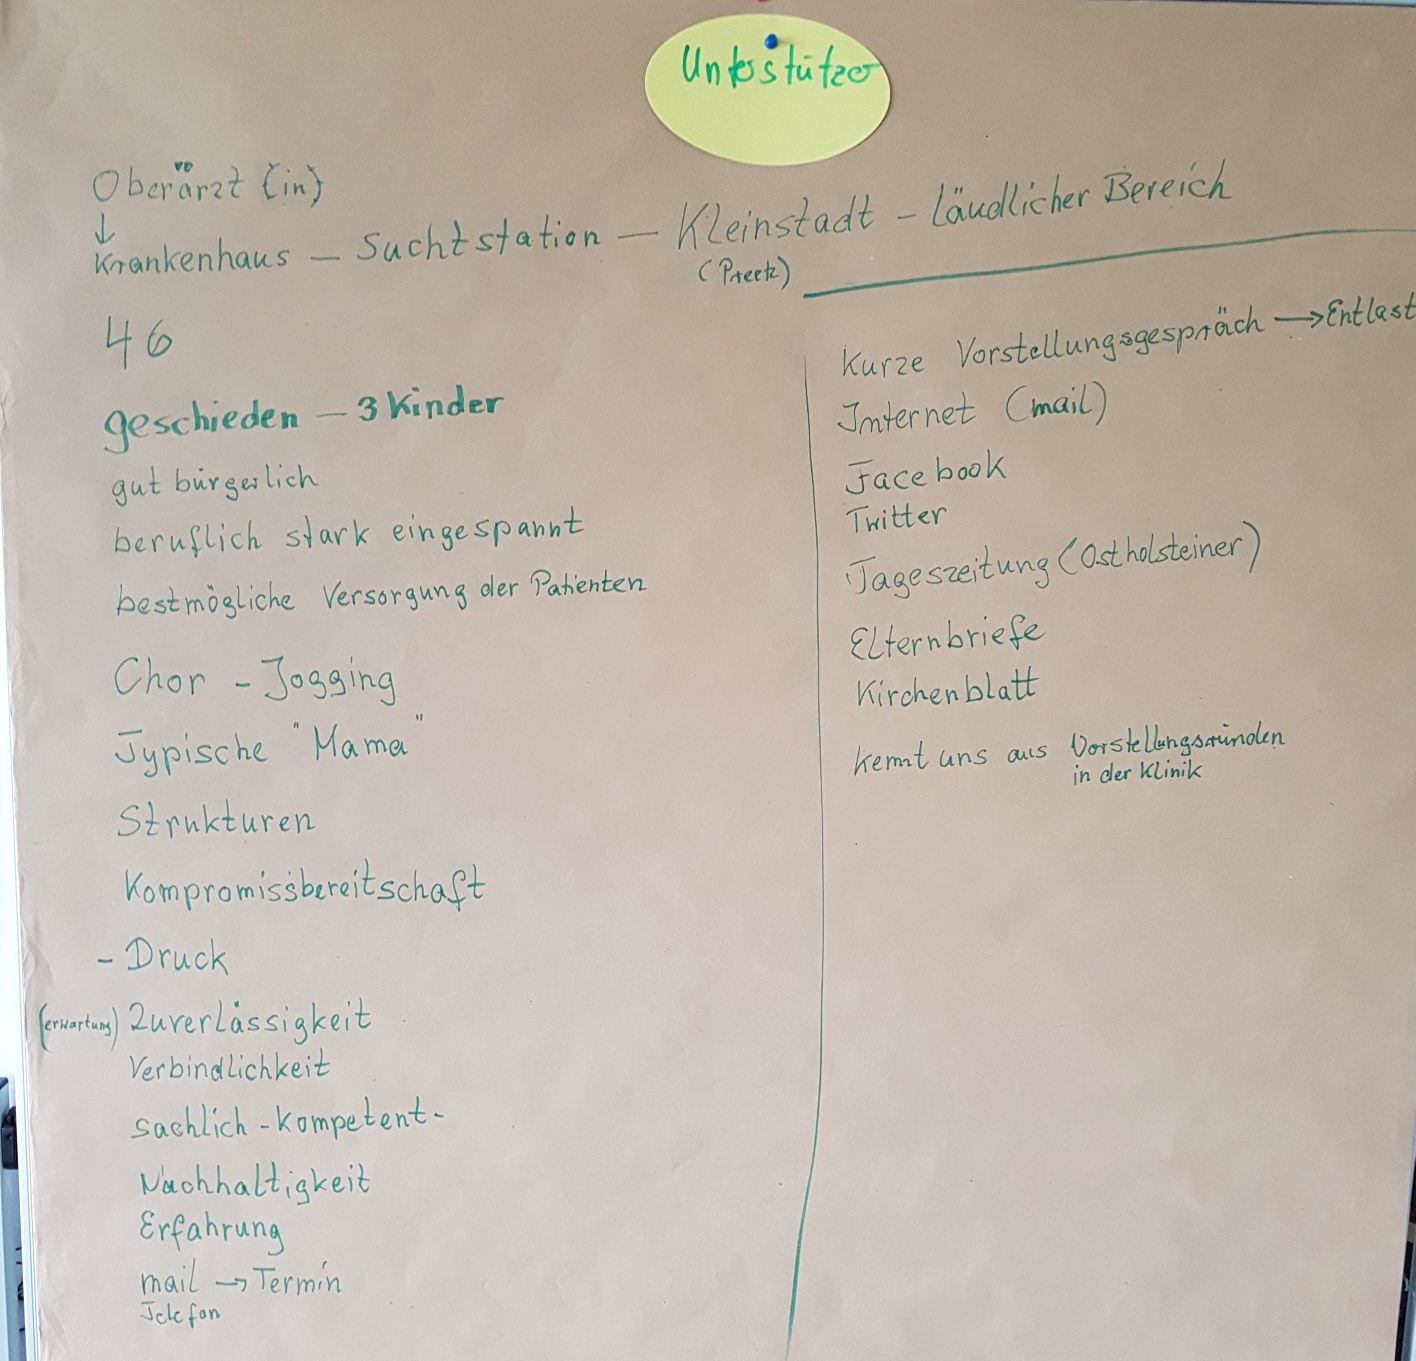 Unterstützer
Oberärzt (in)
↓
Krankenhaus – Suchtstation – Kleinstadt – ländlicher Bereich
(Preetz)
46
geschieden – 3 Kinder
gut bürgerlich
beruflich stark eingespannt
bestmögliche Versorgung der Patienten
Chor – Jogging
Typische "Mama"
Strukturen
Kompromissbereitschaft
– Druck
(erwartung) Zuverlässigkeit
Verbindlichkeit
sachlich - kompetent -
Nachhaltigkeit
Erfahrung
mail → Termin
Telefon
Kurze Vorstellungsgespräch → Entlast
Internet (mail)
Facebook
Twitter
Tageszeitung (Ostholsteiner)
Elternbriefe
Kirchenblatt
kennt uns aus Vorstellungsrunden
in der Klinik